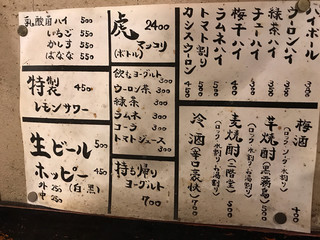 乳酸菌ハイ 500
いちご 550
かしす 550
ばなな 550
特製
レモンサワー 450
生ビール 500
ホッピー 450
外 250 (白・黒)
中 250
虎 2400
マッコリ
(ボトル)
飲むヨーグルト
ウーロン茶 300
緑茶
ラムネ
コーラ
トマトジュース
持ち帰り
ヨーグルト
700
ハイボール
ウーロンハイ
緑茶ハイ
チューハイ
梅干ハイ
ラムネハイ
トマト割り
カシスウーロン
梅酒
(ロック・ソーダ・水割り) 400
芋焼酎(黒霧島)
(ロック・水割り・お湯割り) 500
麦焼酎(二階堂)
(ロック・水割り・お湯割り) 500
冷酒(辛口哀快) 700